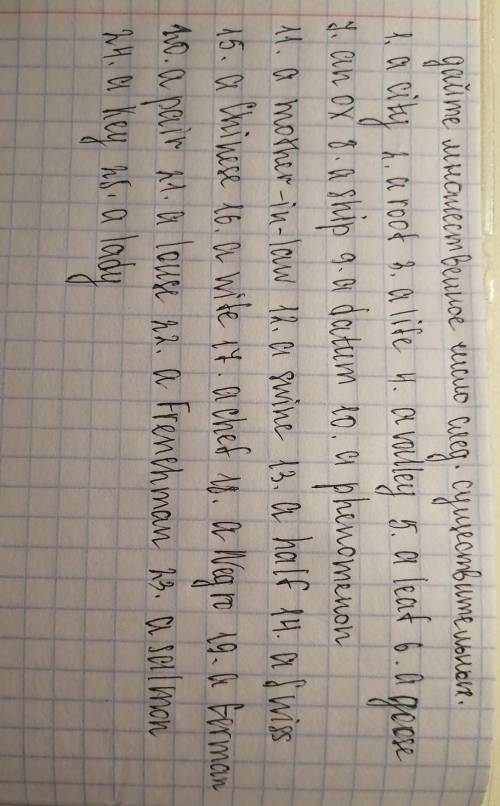 дайте множественное число след. существительных.
1. a city 2. a roof 3. a life 4. a valley 5. a leaf 6. a goose
7. an ox 8. a ship 9. a datum 10. a phenomenon
11. a mother-in-law 12. a swine 13. a half 14. a Swiss
15. a Chinese 16. a wife 17. a chef 18. a Negro 19. a German
20. a pair 21. a louse 22. a Frenchman 23. a sallmon
24. a key 25. a lady